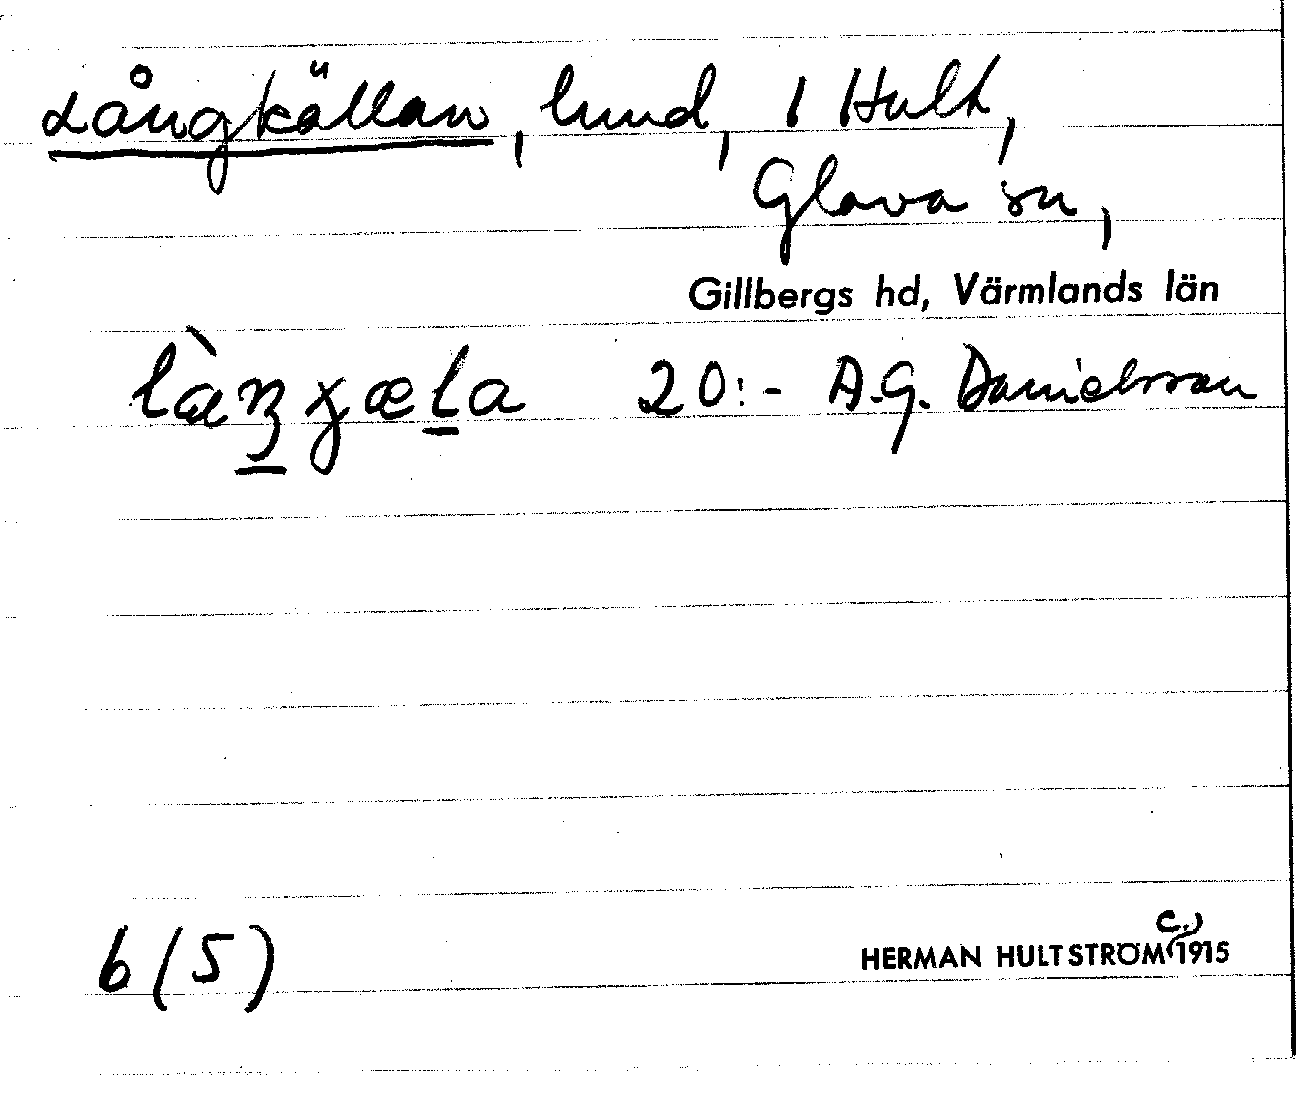 Långkällan, lund, i Hult,
Glava sn,
Gillbergs hd, Värmlands län
20:- A.G. Danielsson
6 (5)
c.)
HERMAN HULTSTRÖM 1915